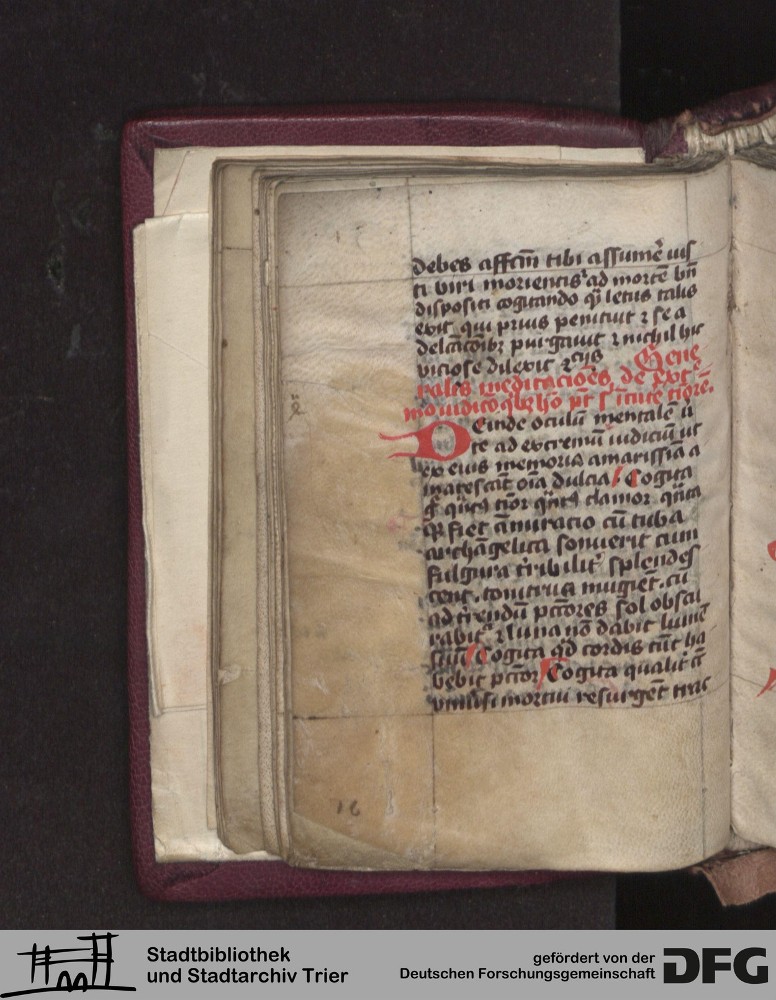 debes affcm̄ tibi assume᷒ uis
ti viri morientis ad mortē bn̄
dispositi cogitando q̄ letus talis
exit qui prius penituit ⁊ se a
delcacōibꝫ purgauit ⁊ nichil hic
viciose dilexit ⁊ciꝰ Gene
rales meditacōes de ext᷒
mo iudicō
Deinde oculū mentalē ū
te ad extremū iudiciū ut
ex eius memoria amarissīa a
marescāt oīa dulcia Cogita
tiōr clamor
fiet āmiracio cū tuba
archāgelica sonuerit cum
fulgura t̄ribilit᷒ splendes
cent. tonitrua mugiēt. cū
ad t̄rendū pctōres sol obscu
rabit᷒ ⁊ luna nō dabit lumē
suū Cogita qd̄ cordis tūc ha
bebit pctōr Cogita qualit᷒
mortui resurgēt
16
Stadtbibliothek
und Stadtarchiv Trier
gefördert von der
Deutschen Forschungsgemeinschaft
DFG